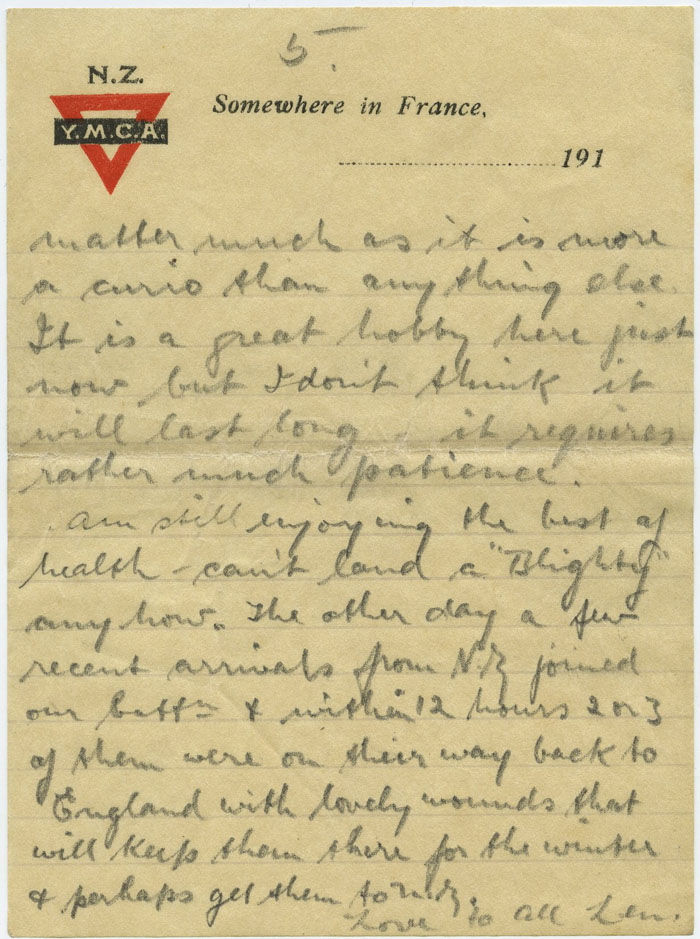 5.
N.Z.
Y.M.C.A.
Somewhere in France,
191
matter much as it is more
a curio than anything else.
It is a great hobby here just
now but I don't think it
will last long. it requires
rather much patience.
Am still enjoying the best of
health - can't land a "Blighty"
any how. The other day a few
recent arrivals from N.Z joined
our battn & within 12 hours 2 or 3
of them were on their way back to
England with lovely wounds that
will keep them there for the winter
& perhaps get them to N.Z.
Love to all Len.